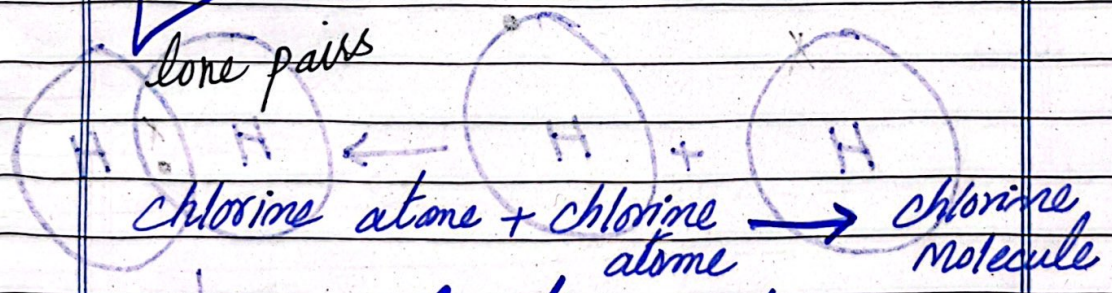 lone pairs
H H ← H + H
chlorine atome + chlorine → chlorine
atome Molecule